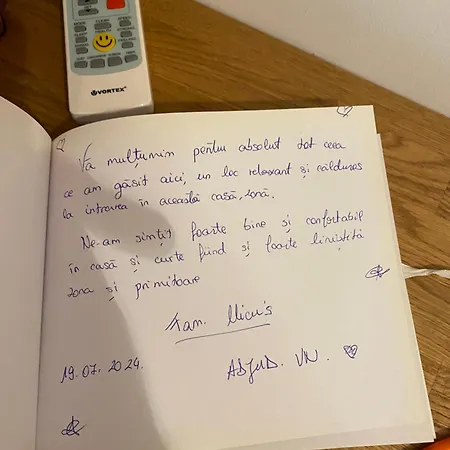 VORTEX
Vă mulțumim pentru absolut tot ceea
ce am găsit aici, un loc relaxant și călduros
la intrarea în această casă, zonă.
Ne-am simțit foarte bine și confortabil
în casă și curte fiind și foarte liniștită
zona și primitoare
Fam. Micu's
19.07.2024.
ADJUD. VN.